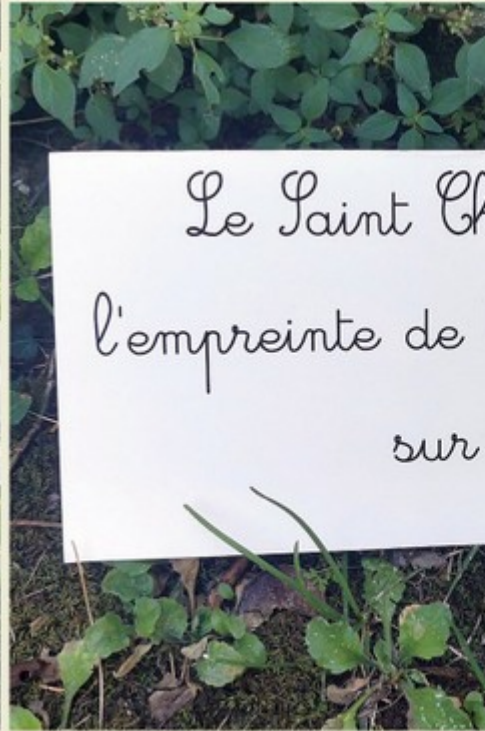 Le Saint Ch
l'empreinte de
sur